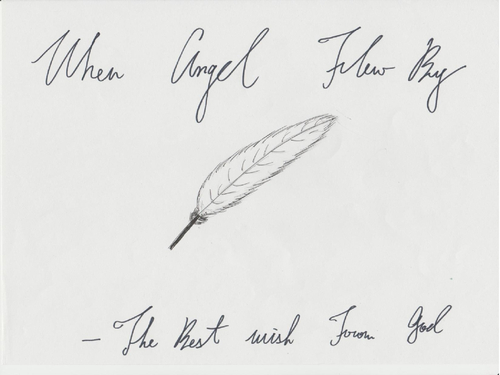 When Angel Flew By
– The Best wish From God